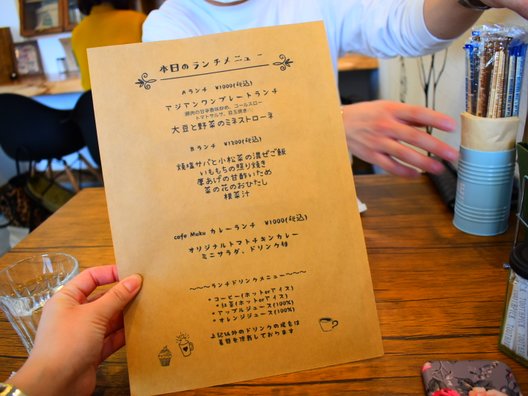 本日のランチメニュー
Aランチ ¥1000(税込)
アジアンワンプレートランチ
豚肉の甘辛香味炒め コールスロー
トマトサルサ、目玉焼き
大豆と野菜のミネストローネ
Bランチ ¥1200(税込)
焼塩サバと小松菜の混ぜご飯
いももちの照り焼き
厚あげの甘酢いため
菜の花のおひたし
根菜汁
cafe Muku カレーランチ ¥1000(税込)
オリジナルトマトチキンカレー
ミニサラダ、ドリンク付
～～～～ランチドリンクメニュー～～～～
*コーヒー(ホットorアイス)
*紅茶(ホットorアイス)
*アップルジュース(100%)
*オレンジジュース(100%)
上記以外のドリンクの場合は
差額を頂戴しております